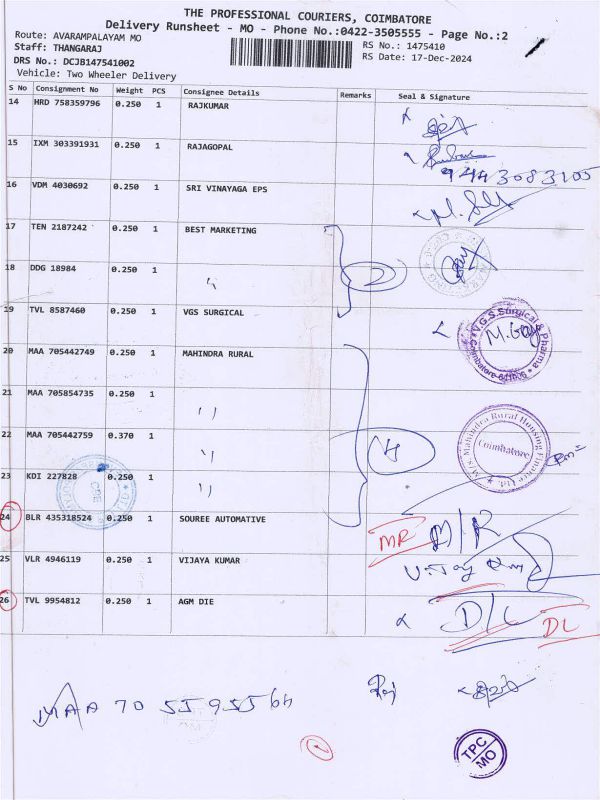 THE PROFESSIONAL COURIERS, COIMBATORE
Delivery Runsheet - MO - Phone No.:0422-3505555 - Page No.:2
Route: AVARAMPALAYAM MO
RS No.: 1475410
Staff: THANGARAJ
RS Date: 17-Dec-2024
DRS No.: DCJB147541002
Vehicle: Two Wheeler Delivery
S No Consignment No Weight PCS Consignee Details Remarks Seal & Signature
14 HRD 758359796 0.250 1 RAJKUMAR
15 IXM 303391931 0.250 1 RAJAGOPAL
9443083105
16 VDM 4030692 0.250 1 SRI VINAYAGA EPS
17 TEN 2187242 0.250 1 BEST MARKETING
18 DDG 18984 0.250 1 " 2
19 TVL 8587460 0.250 1 VGS SURGICAL
V.G.S. Surgical Pharma
20 MAA 705442749 0.250 1 MAHINDRA RURAL
21 MAA 705854735 0.250 1 "
22 MAA 705442759 0.370 1 " 4
M/s Mahindra Rural Housing Finance Ltd. Coimbatore
23 KDI 227828 0.250 1 "
24 BLR 435318524 0.250 1 SOUREE AUTOMATIVE MR M/R
25 VLR 4946119 0.250 1 VIJAYA KUMAR
26 TVL 9954812 0.250 1 AGM DIE D/L DL
MAA 70 5595564
TPC
MO